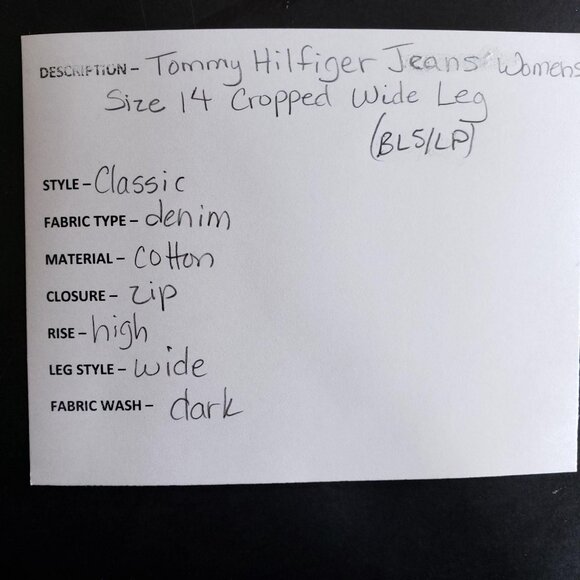 DESCRIPTION – Tommy Hilfiger Jeans Womens
Size 14 Cropped Wide Leg
(BLS/LP)
STYLE – Classic
FABRIC TYPE – denim
MATERIAL – cotton
CLOSURE – zip
RISE – high
LEG STYLE – wide
FABRIC WASH – dark